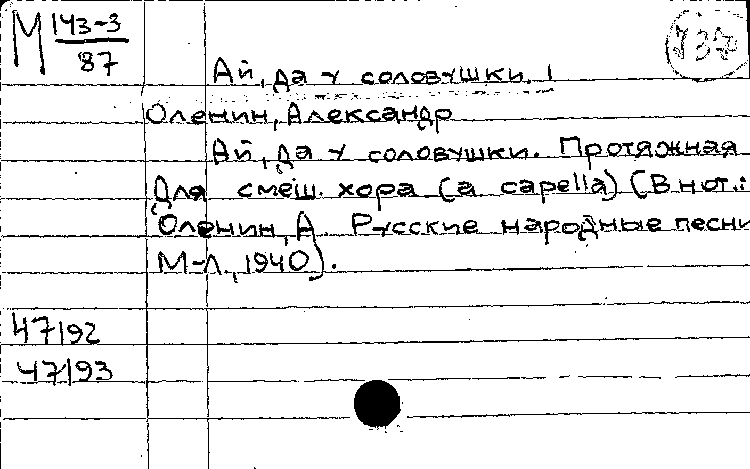 М 143-3
87
737
Ай, да у соловушки. 1
Оленин, Александр
Ай, да у соловушки. Протяжная
Для смеш. хора (a capella) (В нот.:
Оленин, А. Русские народные песни
М-Л., 1940).
47192
47193